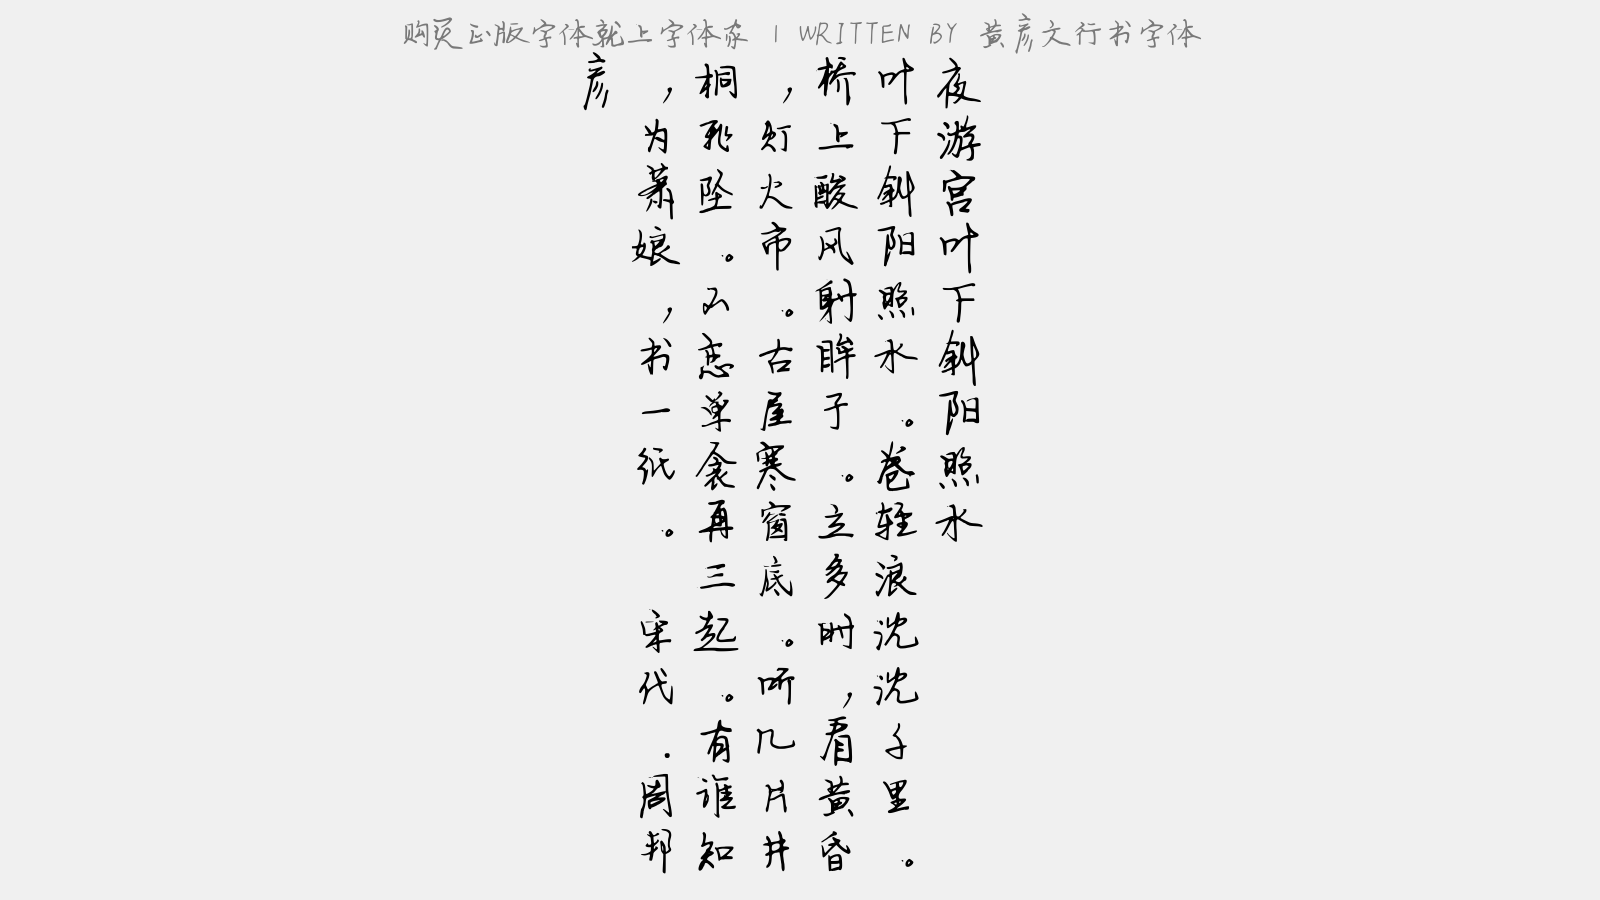 购买正版字体就上字体家 | WRITTEN BY 黄彦文行书字体
夜游宫叶下斜阳照水
叶下斜阳照水。卷轻浪沈沈千里。
桥上酸风射眸子。立多时，看黄昏
，灯火市。古屋寒窗底。听几片井
桐飞坠。不恋单衾再三起。有谁知
，为萧娘，书一纸。 宋代.周邦
彦